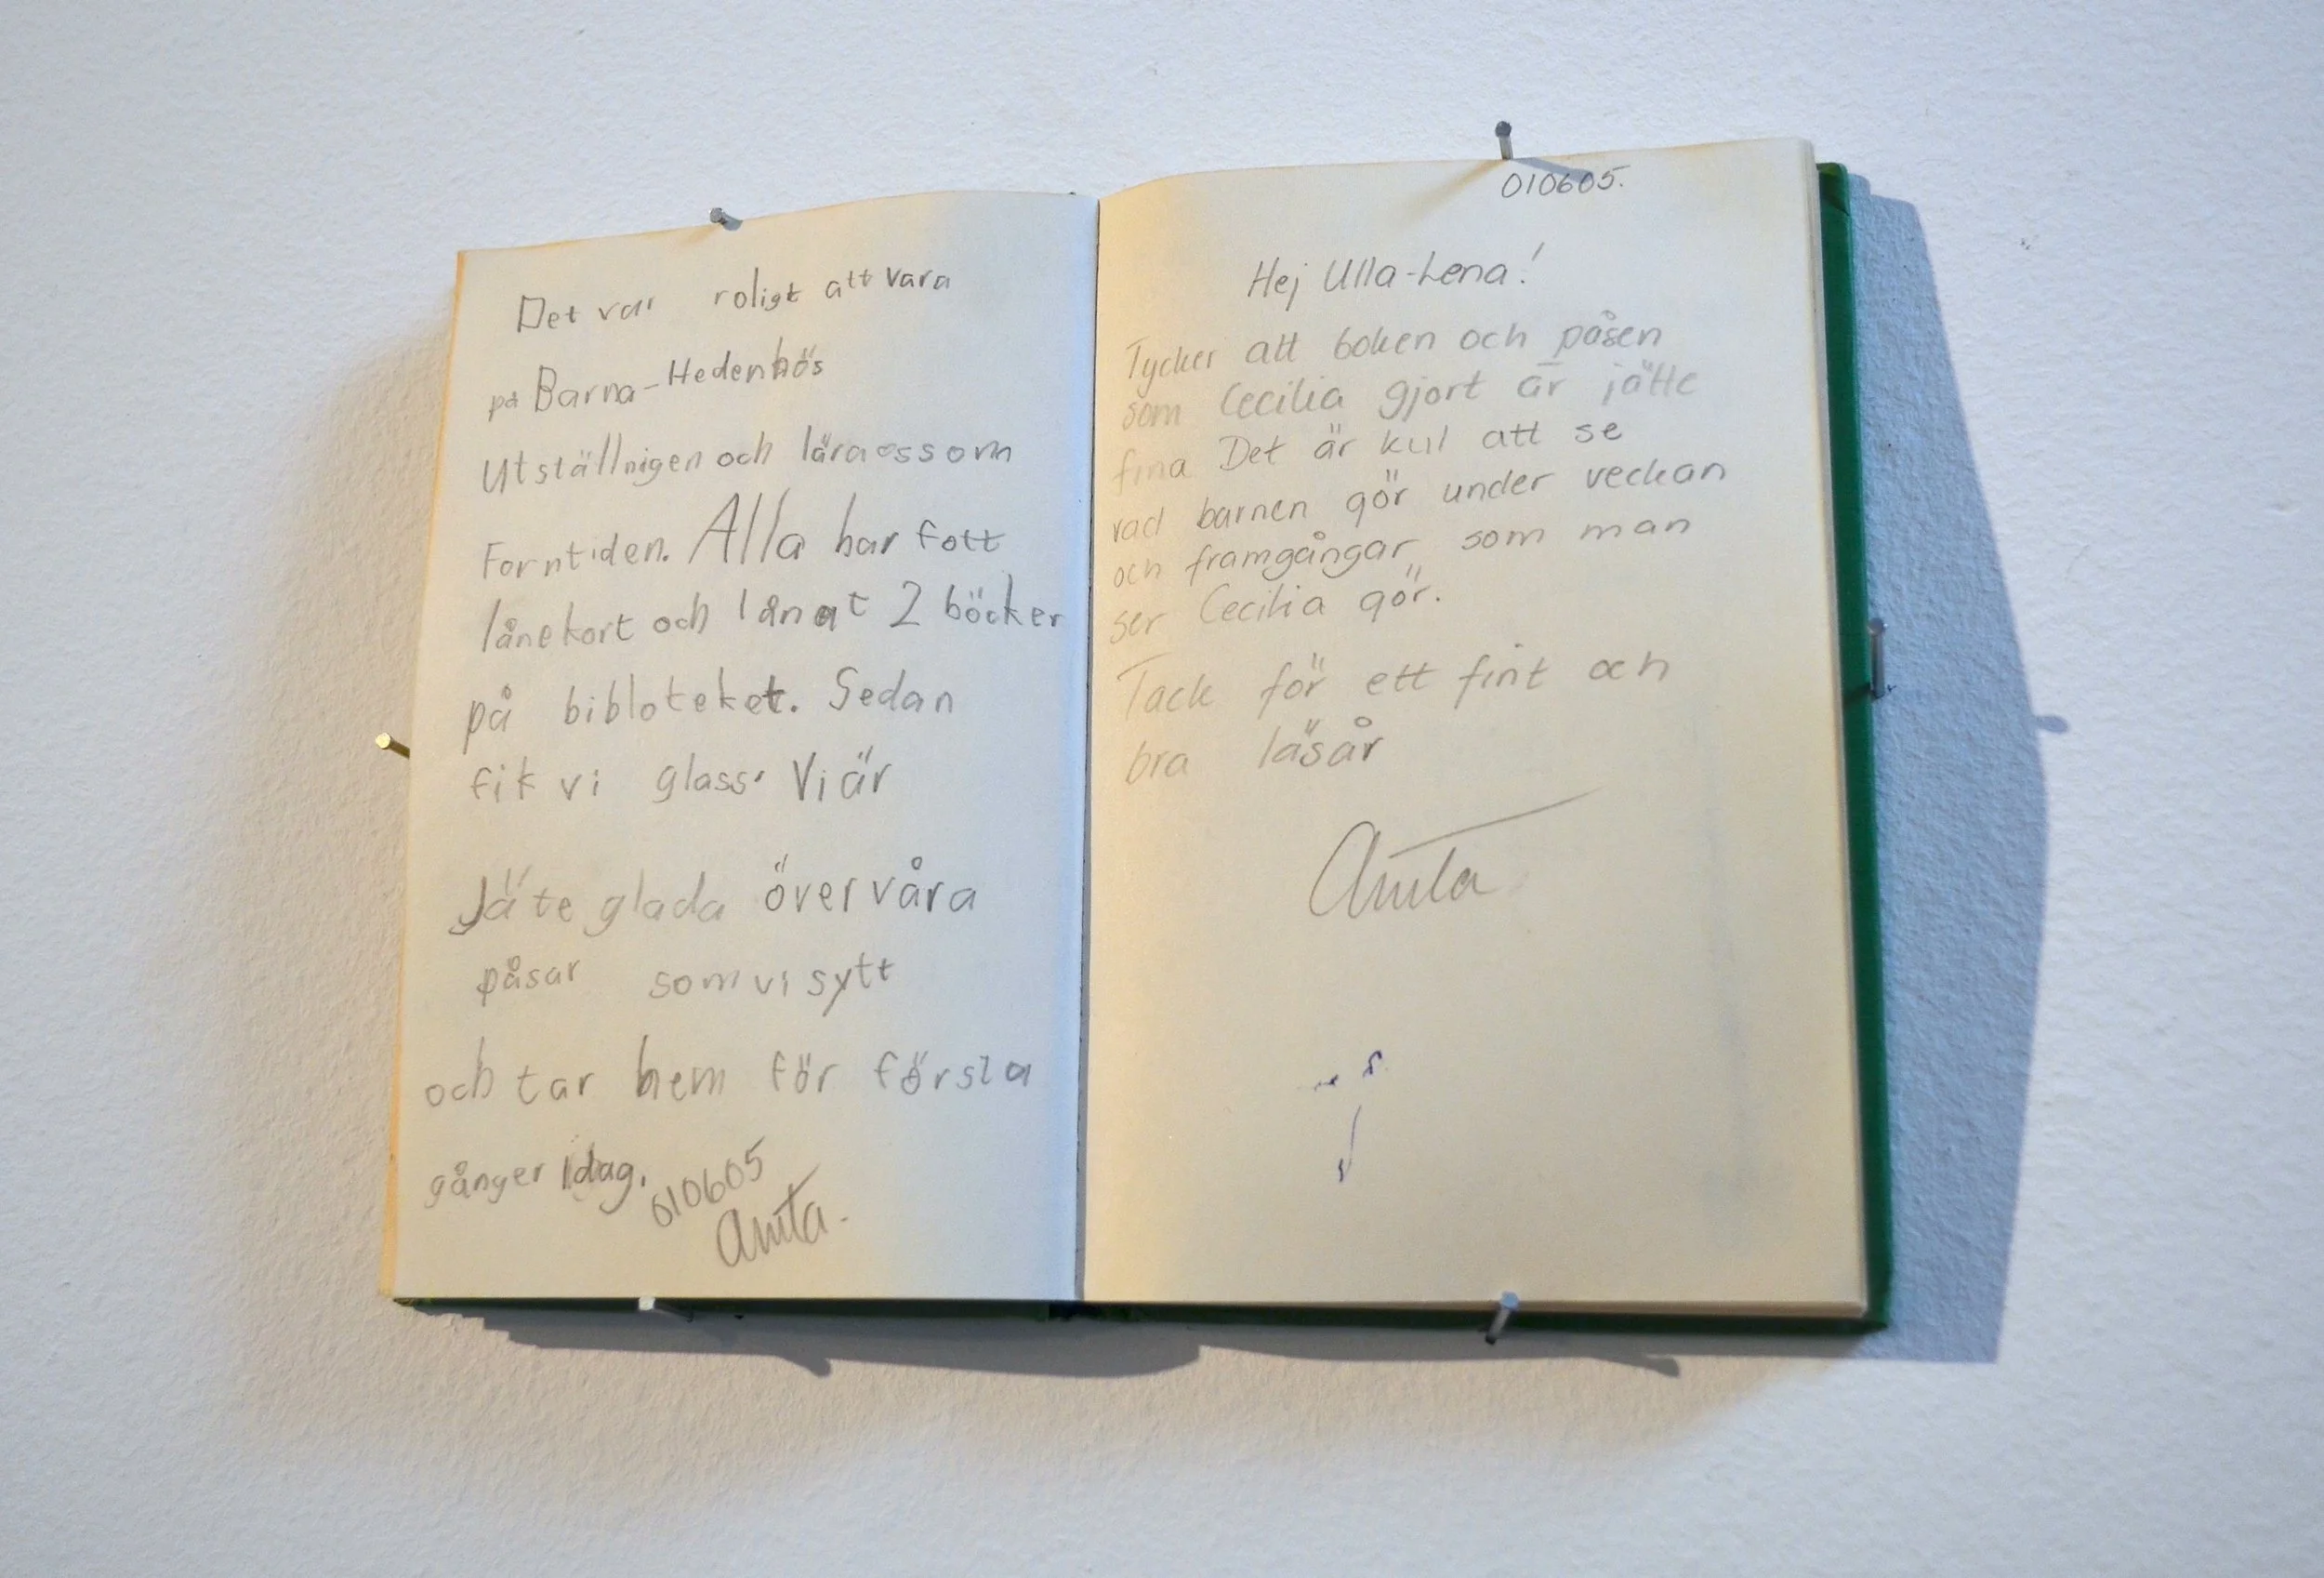 Det var roligt att vara
på Barna-Hedenhös
Utställnigen och lära oss om
Forntiden. Alla har fott
lånekort och lånat 2 böcker
på bibloteket. Sedan
fik vi glass. Vi är
Jäte glada över våra
påsar som vi sytt
och tar hem för första
gånger idag.
010605
Anita.
010605.
Hej Ulla-Lena!
Tycker att boken och påsen
som Cecilia gjort är jätte
fina Det är kul att se
vad barnen gör under veckan
och framgångar som man
ser Cecilia gör.
Tack för ett fint och
bra läsår
Anita